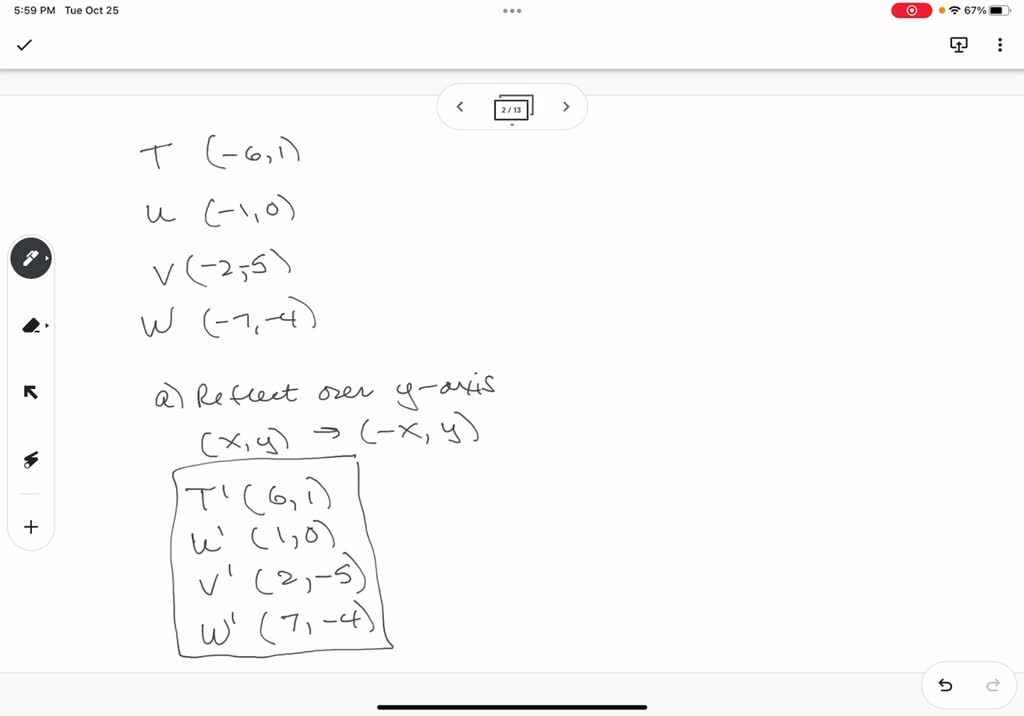 5:59 PM Tue Oct 25
67%
2 / 13
T (-6,1)
U (-1,0)
V (-2,-5)
W (-7,-4)
a) Reflect over y-axis
(x,y) → (-x, y)
T' (6,1)
U' (1,0)
V' (2,-5)
W' (7,-4)